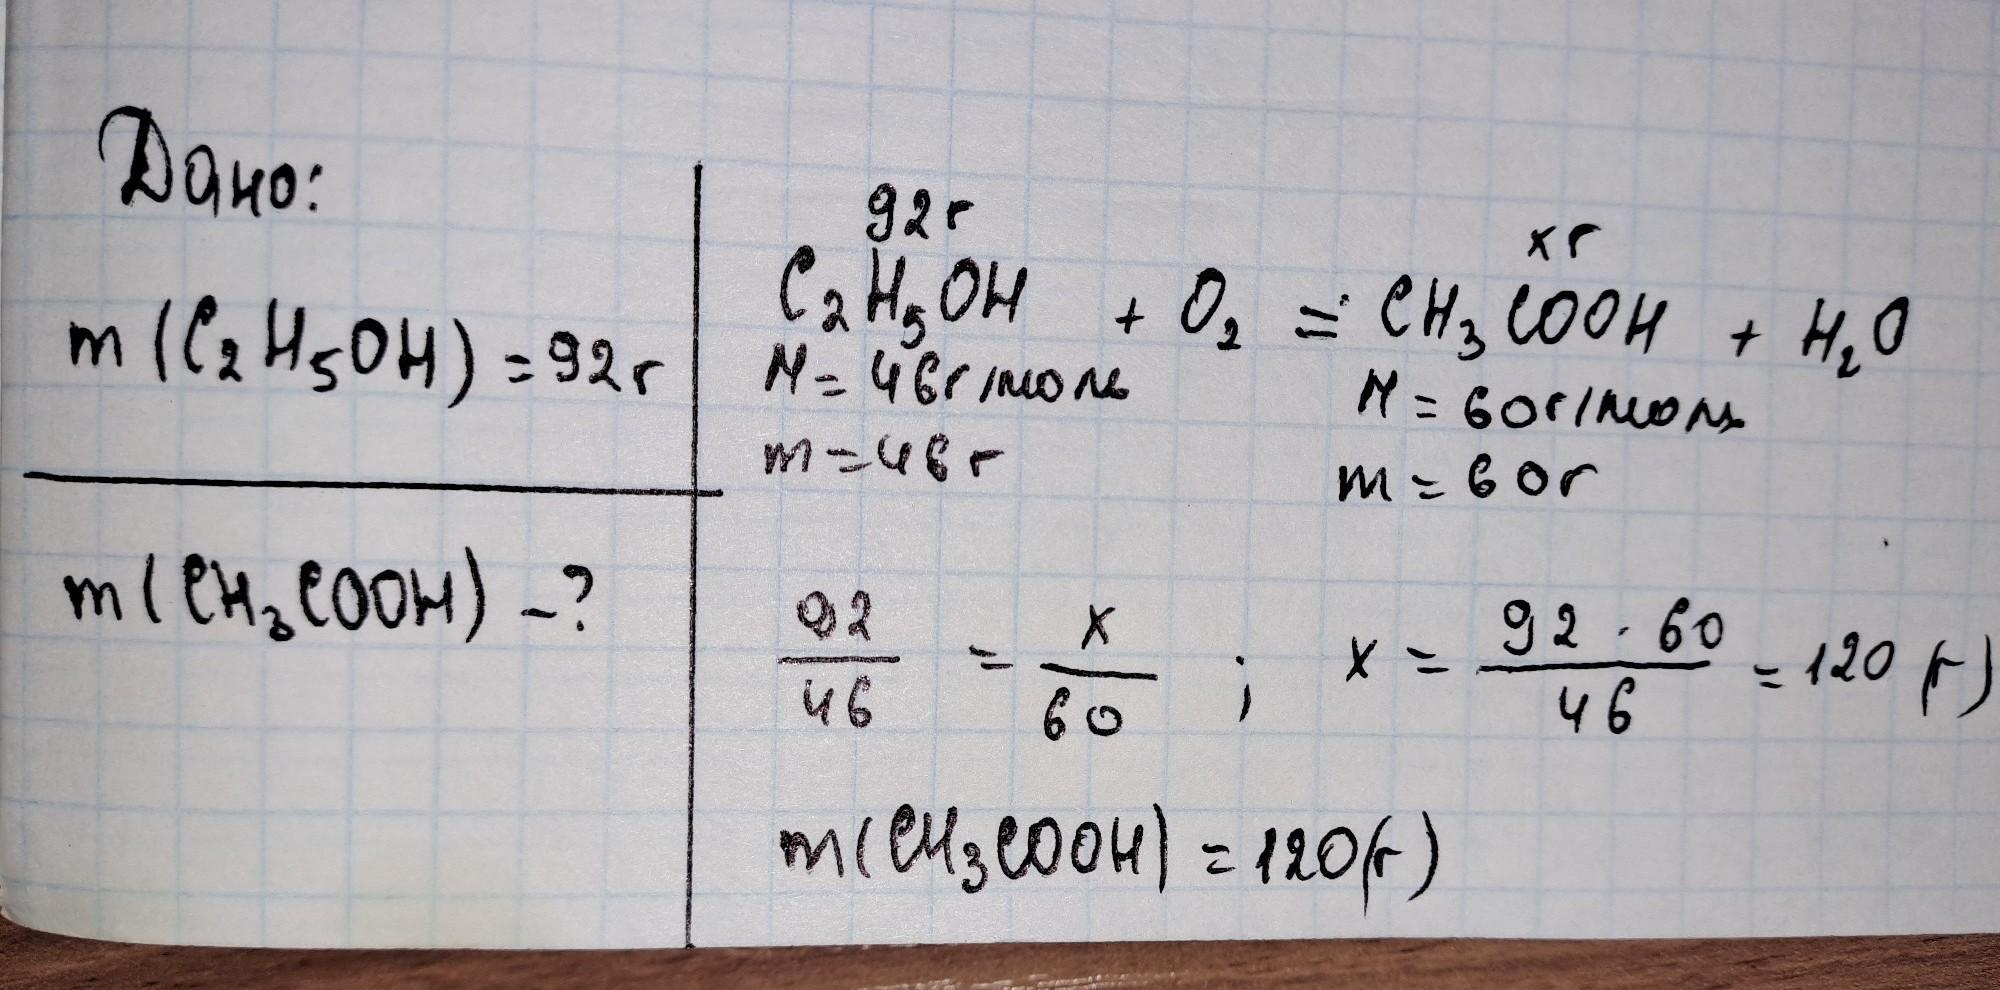 Дано:
m(C₂H₅OH) = 92г
m(CH₃COOH) - ?
92г
xг
C₂H₅OH + O₂ = CH₃COOH + H₂O
M = 46г/моль
M = 60г/моль
m = 46г
m = 60г
92/46 = x/60 ; x = 92 · 60/46 = 120 (г)
m(CH₃COOH) = 120(г)